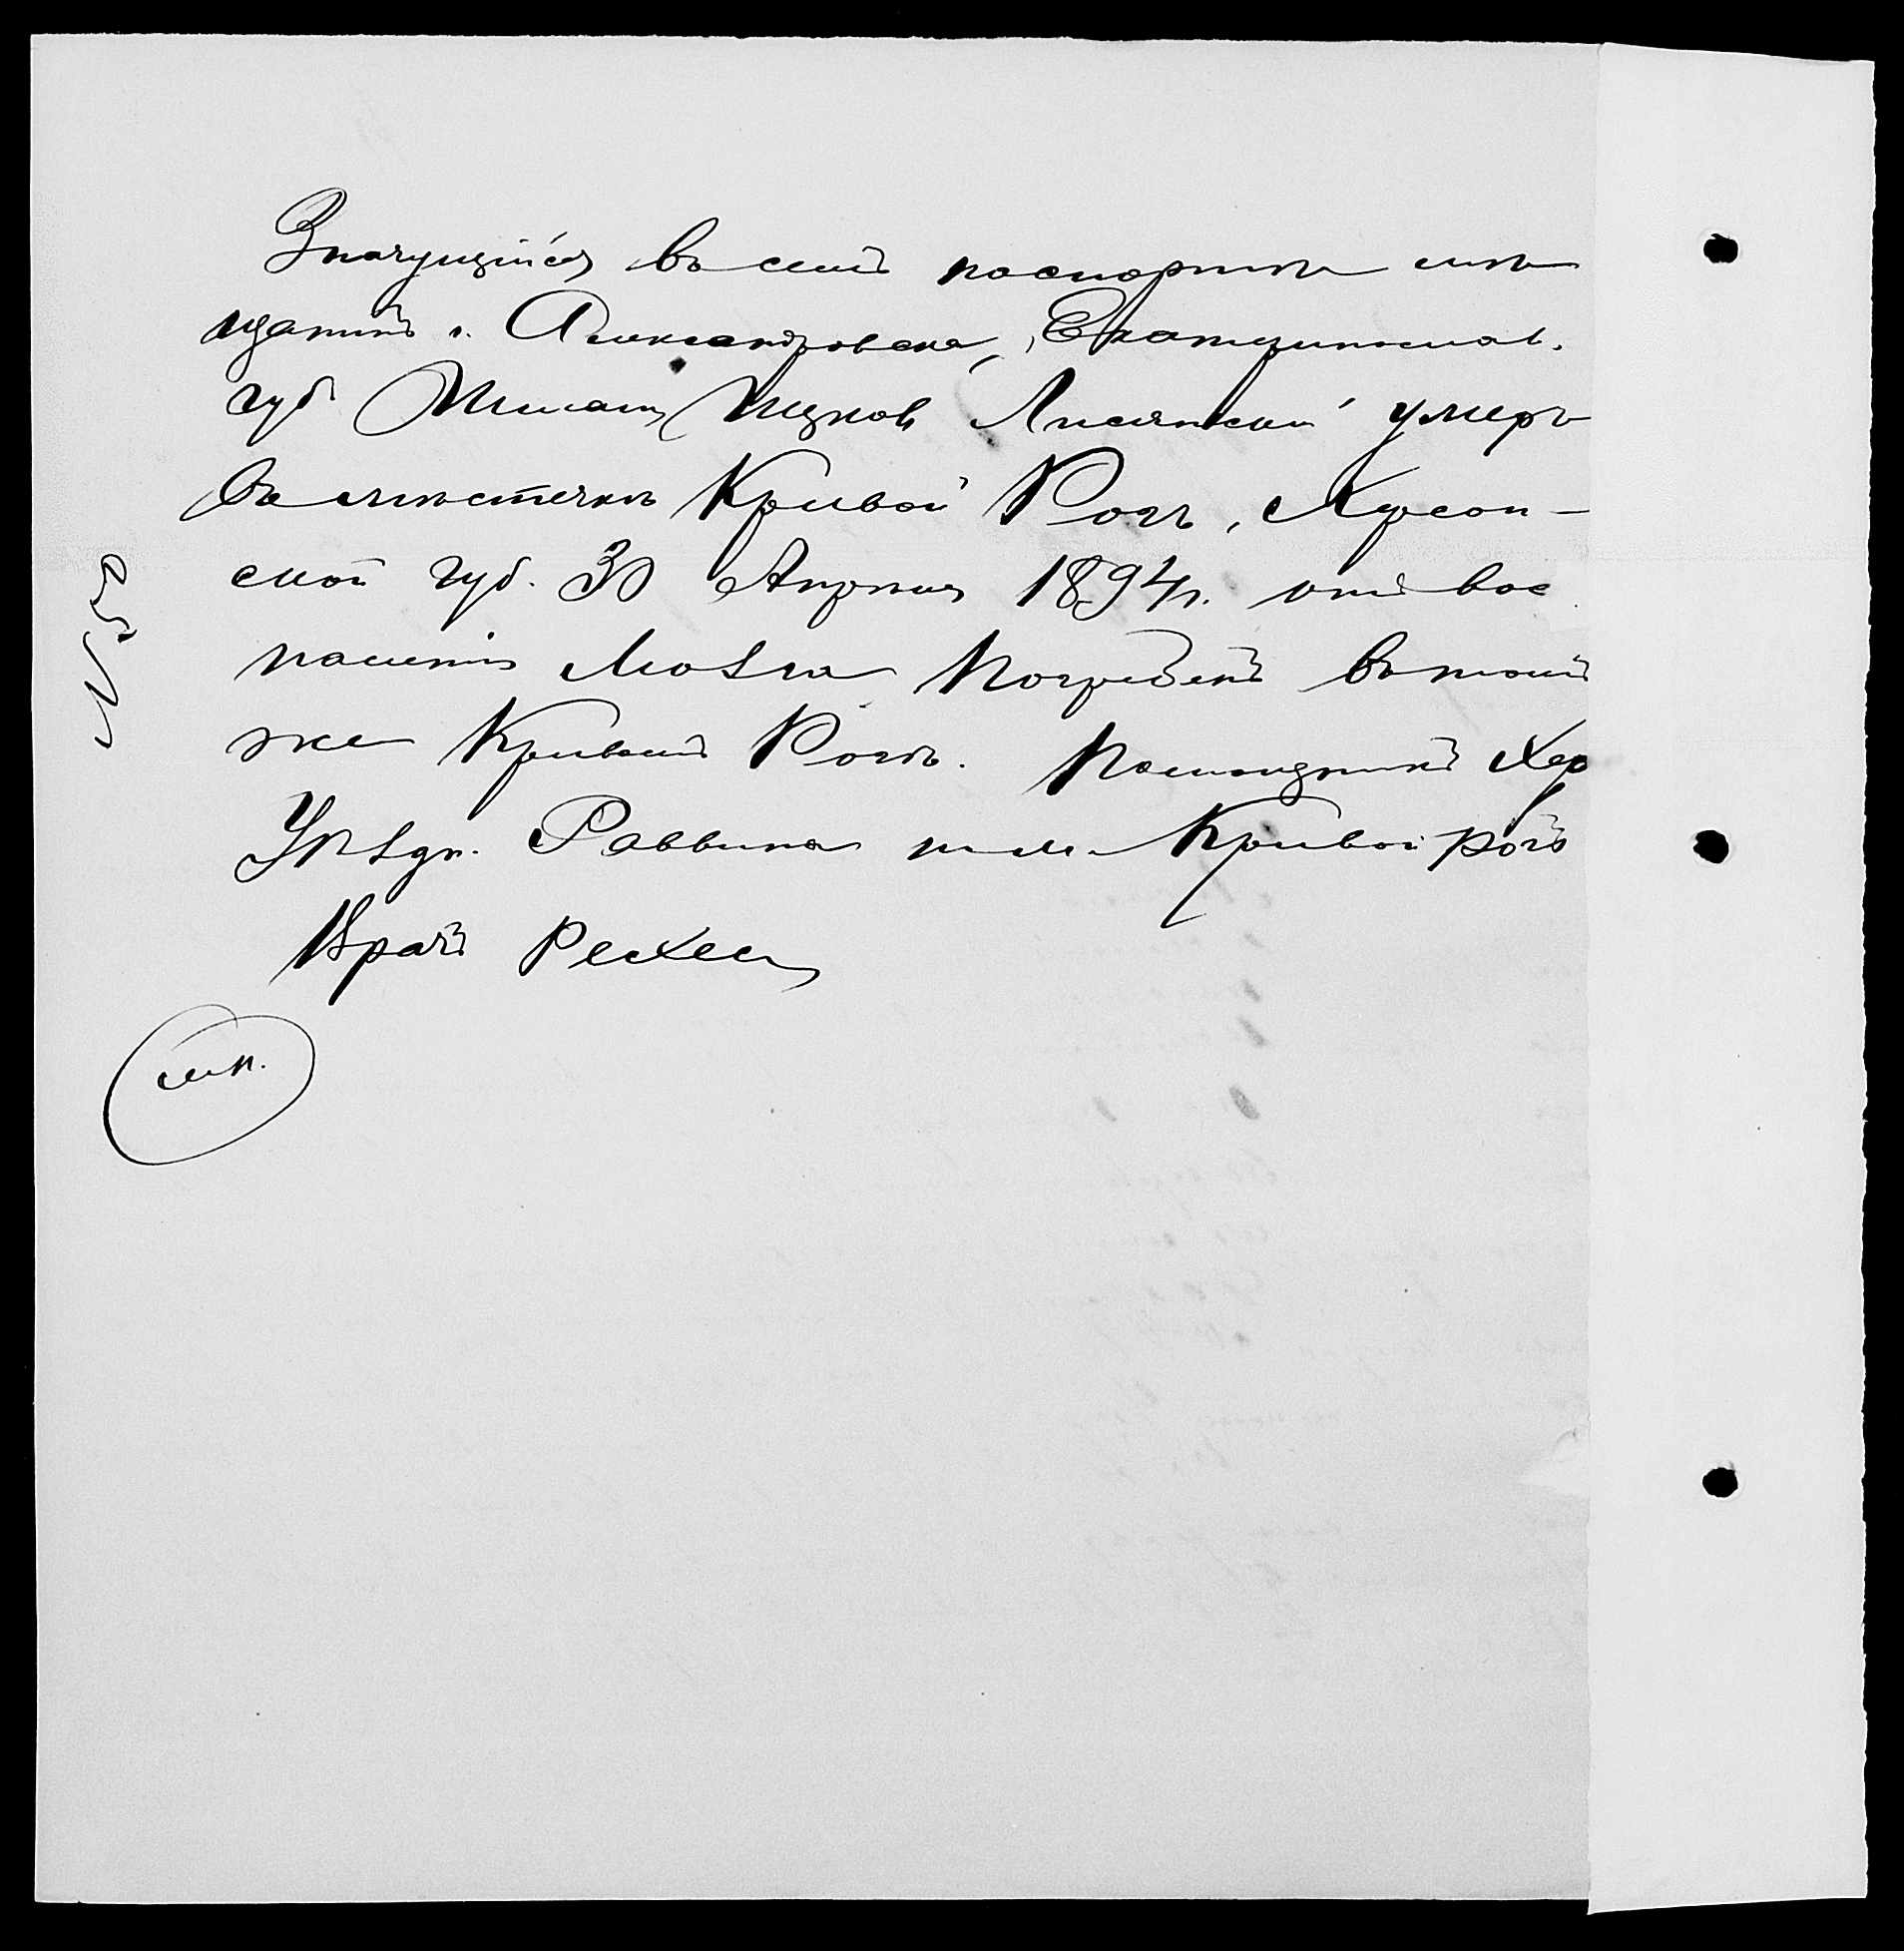 Значущійся въ семъ паспортѣ мѣ
щанинъ г. Александровска, Екатеринослав.
губ Шлиома Ицков Лисянский умеръ
Въ мѣстечкѣ Кривой Рогъ, Херсон-
ской губ. 30 Апрѣля 1894 г. отъ вос
паленія Мозга Погребенъ въ томъ
же Кривомъ Рогѣ. Помощникъ Хер
Уѣздн. Раввина в м. Кривой рогъ
Врачъ
м п.
№ 53